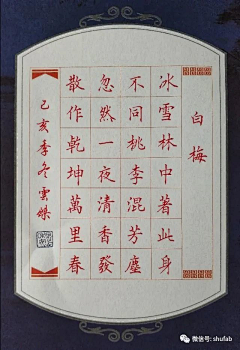 白梅
冰雪林中著此身
不同桃李混芳塵
忽然一夜清香發
散作乾坤萬里春
己亥季冬雲媒
微信号: shufab